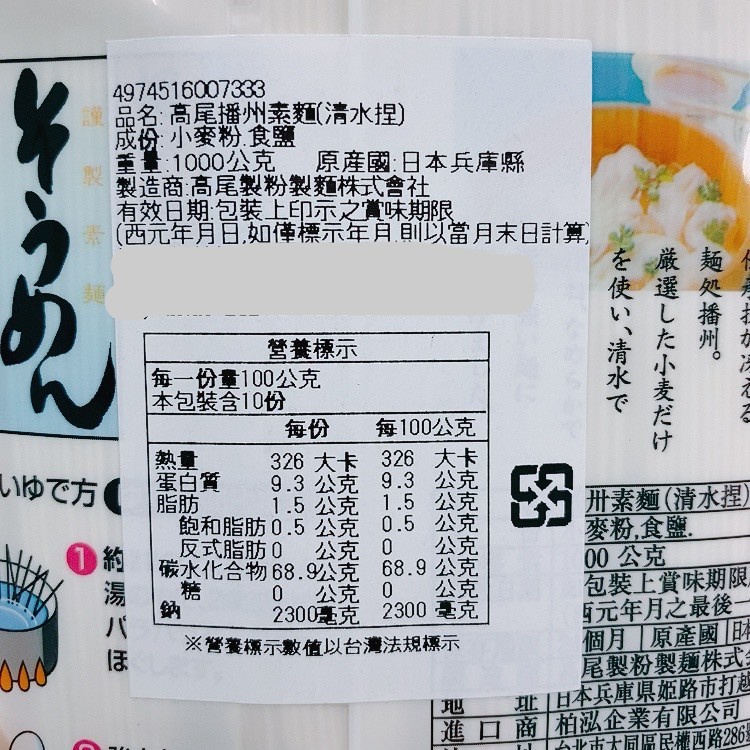 4974516007333
品名:高尾播州素麵(清水捏)
成份:小麥粉.食鹽
重量:1000公克 原產國:日本兵庫縣
製造商:高尾製粉製麵株式會社
有效日期:包裝上印示之賞味期限
(西元年月日,如僅標示年月,則以當月末日計算)
營養標示
每一份量100公克
本包裝含10份
每份 每100公克
熱量 326 大卡 326 大卡
蛋白質 9.3 公克 9.3 公克
脂肪 1.5 公克 1.5 公克
飽和脂肪 0.5 公克 0.5 公克
反式脂肪 0 公克 0 公克
碳水化合物 68.9公克 68.9 公克
糖 0 公克 0 公克
鈉 2300毫克 2300 毫克
※營養標示數值以台灣法規標示
そうめん
謹製素麺
いゆで方
1 約
湯
ほ
麺処播州。
厳選した小麦だけ
を使い、清水で
州素麵(清水捏)
麥粉,食鹽.
00 公克
包裝上賞味期限
西元年月之最後一
個月 原產國 日本
尾製粉製麵株式
地 址 日本兵庫県姫路市打越
進口商 柏泓企業有限公司
台北市大同區民權西路286號